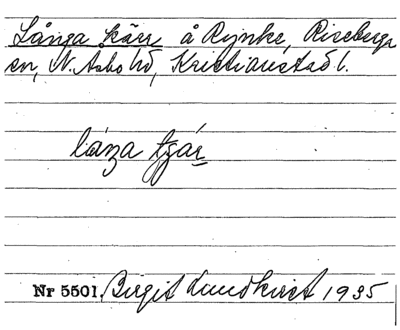 Långa kärr å Rynke, Riseberga
sn, N. Åsbo hd, Kristianstad l.
Nr 5501. Birgit Lundkvist 1935